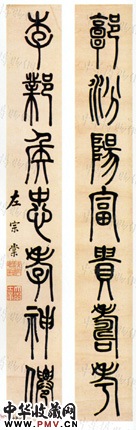 郭汾陽富貴壽考
李鄴侯忠孝神僊
左宗棠
中华收藏网
WWW.PMV.CN